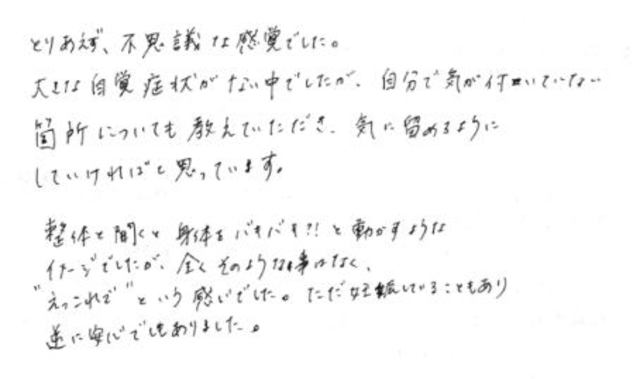 とりあえず、不思議な感覚でした。
大きな自覚症状がない中でしたが、自分で気が付いていない
箇所についても教えていただき、気に留めるように
していければと思っています。
整体と聞くと身体をバキバキ?!と動かすような
イメージでしたが、全くそのような事はなく、
"えっこれで"という感じでした。ただ妊娠していることもあり
逆に安心でもありました。